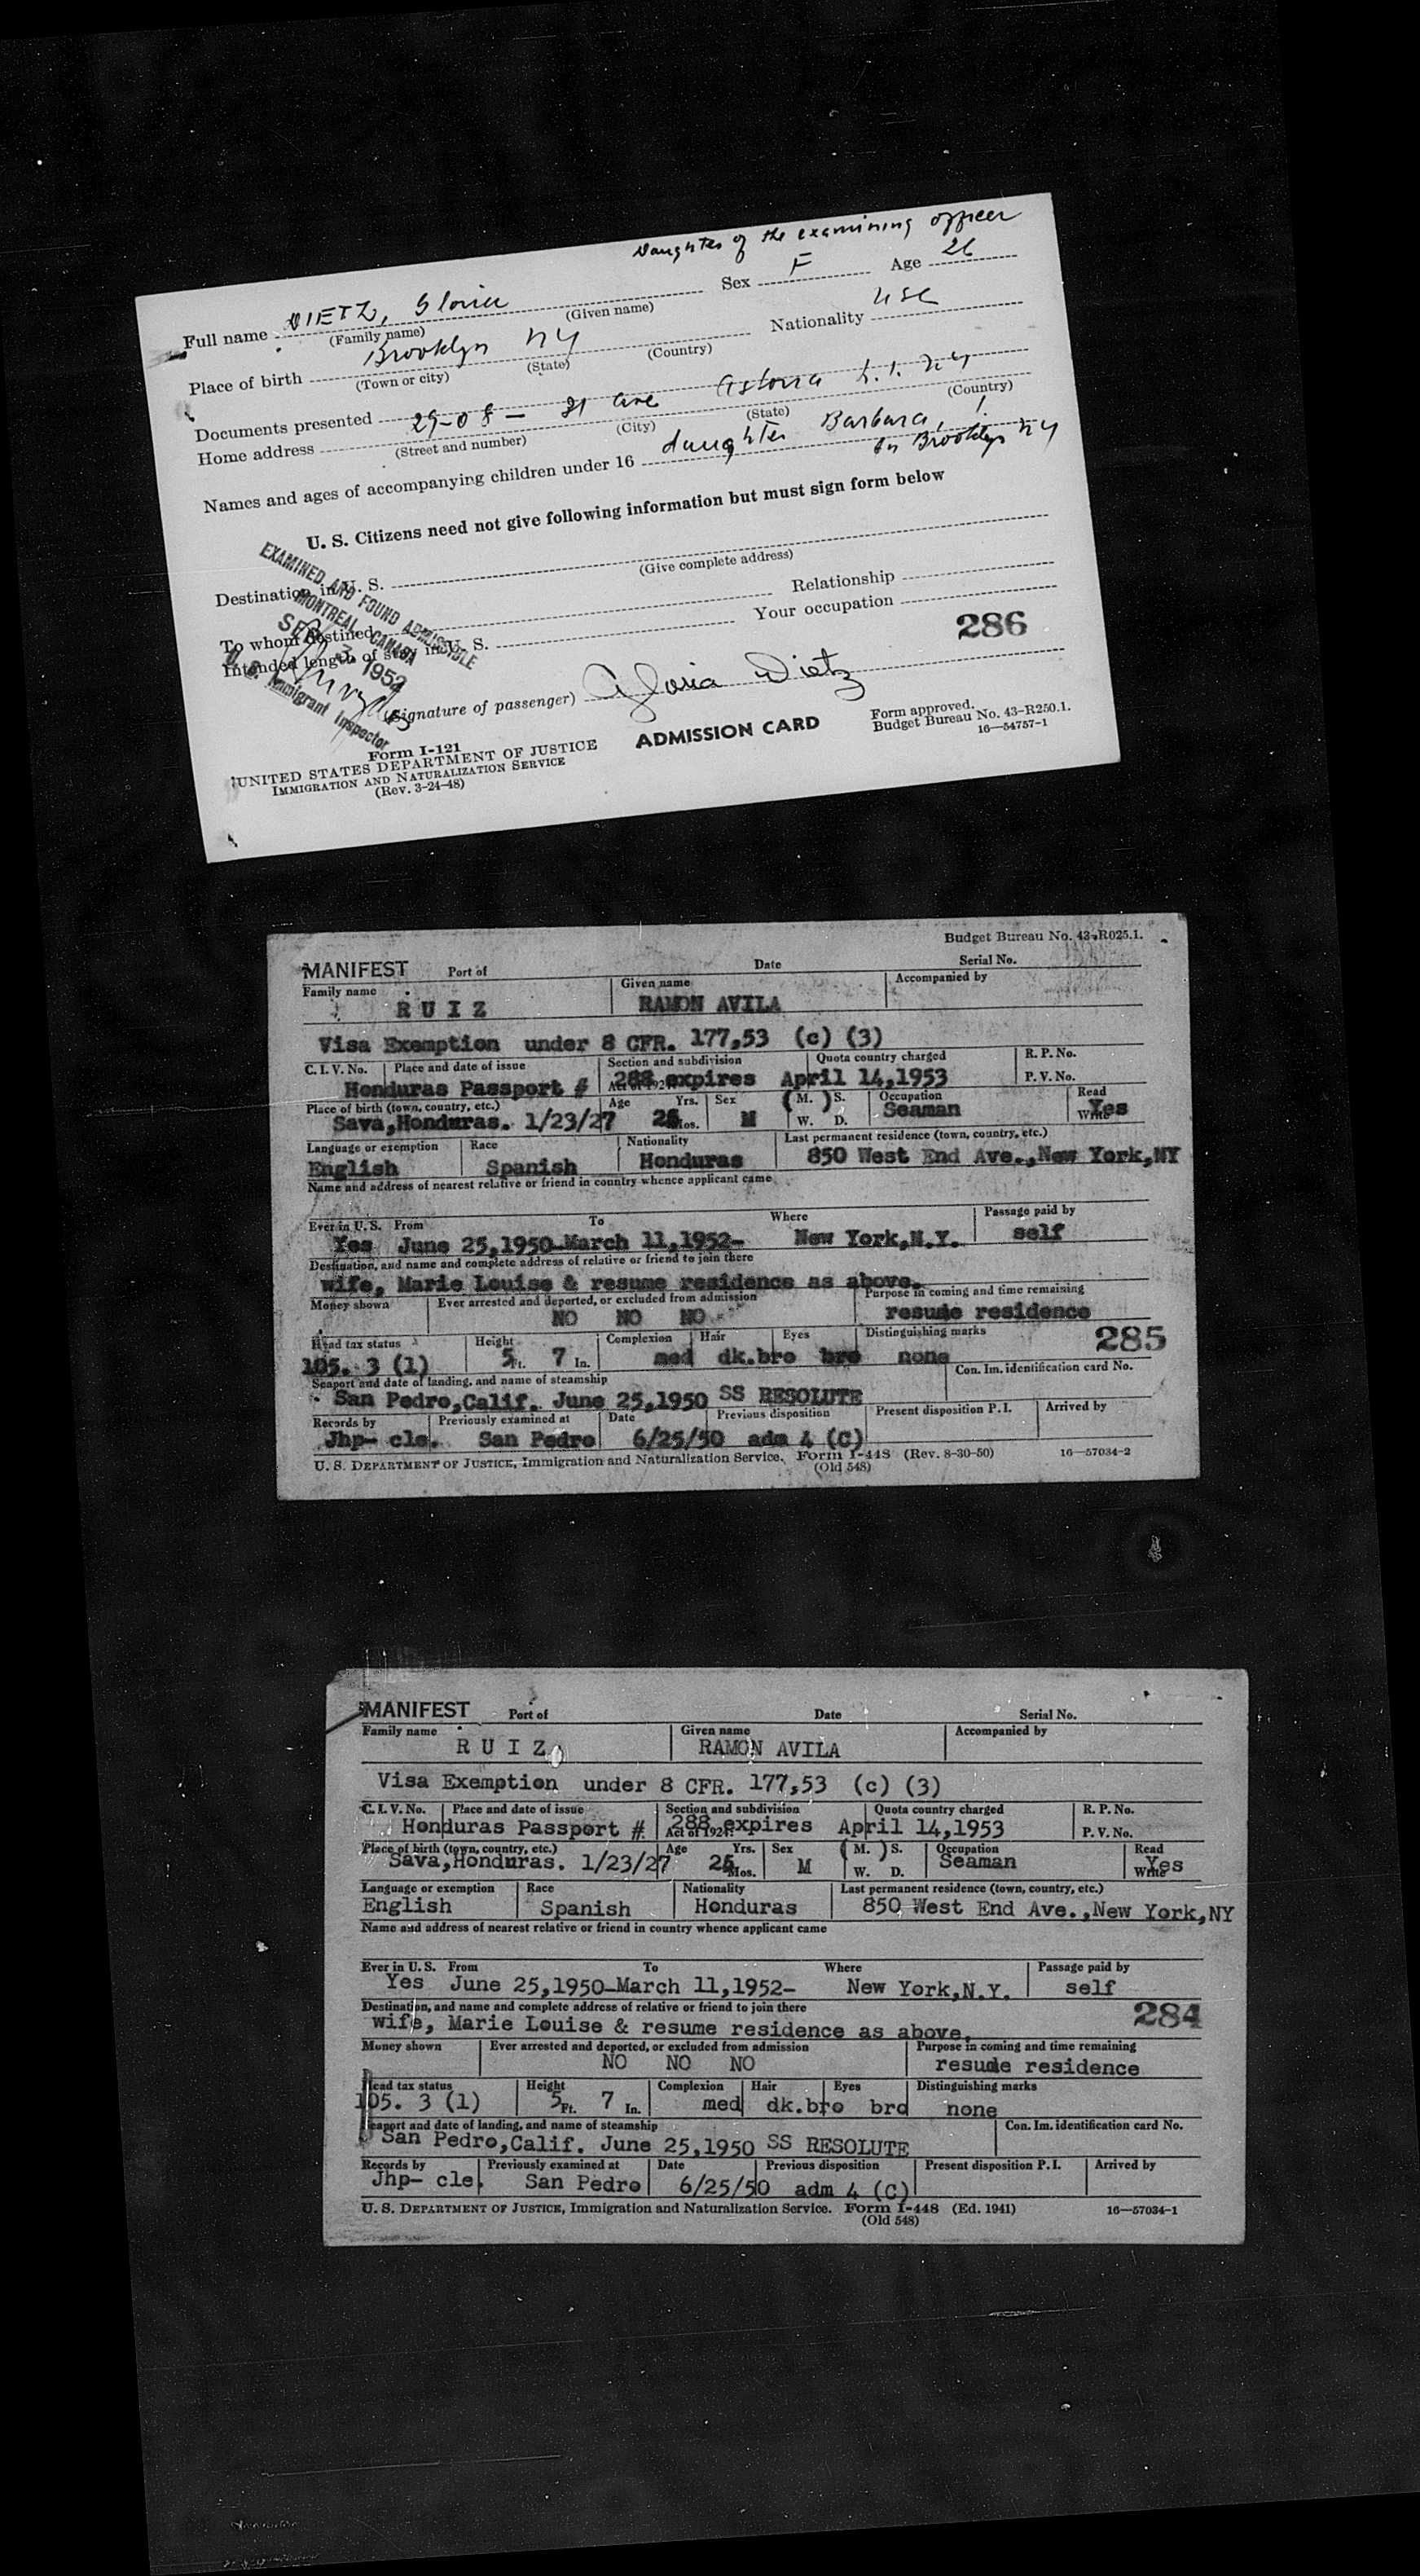 Daughter of the examining officer
Full name DIETZ, Gloria Sex F Age 26
(Family name) (Given name)
Place of birth Brooklyn NY Nationality USC
(Town or city) (State) (Country)
Documents presented
Home address 29-08 - 21 Ave Astoria L.I. NY
(Street and number) (City) (State) (Country)
Names and ages of accompanying children under 16 daughter Barbara, 1
Brooklyn NY
U. S. Citizens need not give following information but must sign form below
Destination in U. S.
(Give complete address)
To whom destined Relationship
Intended length of stay in U. S. Your occupation
EXAMINED AND FOUND ADMISSIBLE
MONTREAL CANADA
1952
U. S. Immigrant Inspector
286
(Signature of passenger) Gloria Dietz
Form I-121
UNITED STATES DEPARTMENT OF JUSTICE
IMMIGRATION AND NATURALIZATION SERVICE
(Rev. 3-24-48)
ADMISSION CARD
Form approved.
Budget Bureau No. 43-R250.1.
16—54757-1
Budget Bureau No. 43-R025.1.
MANIFEST Port of Date Serial No.
Family name Given name Accompanied by
RUIZ RAMON AVILA
Visa Exemption under 8 CFR. 177,53 (c) (3)
C. I. V. No. Place and date of issue Section and subdivision Quota country charged R. P. No.
Honduras Passport # 288 expires April 14,1953 P. V. No.
Act of 1924
Place of birth (town, country, etc.) Age Yrs. Sex (M.) S. Occupation Read
Sava,Honduras. 1/23/27 25 Mos. M W. D. Seaman Write Yes
Language or exemption Race Nationality Last permanent residence (town, country, etc.)
English Spanish Honduras 850 West End Ave.,New York,NY
Name and address of nearest relative or friend in country whence applicant came
Ever in U. S. From To Where Passage paid by
Yes June 25,1950-March 11,1952- New York,N.Y. self
Destination, and name and complete address of relative or friend to join there
wife, Marie Louise & resume residence as above.
Money shown Ever arrested and deported, or excluded from admission Purpose in coming and time remaining
NO NO NO resume residence
285
Head tax status Height Complexion Hair Eyes Distinguishing marks
105. 3 (1) 5 Ft. 7 In. med dk.bro bro none
Con. Im. identification card No.
Seaport and date of landing, and name of steamship
San Pedro,Calif. June 25,1950 SS RESOLUTE
Records by Previously examined at Date Previous disposition Present disposition P. I. Arrived by
Jhp- cle. San Pedro 6/25/50 adm 4 (C)
U. S. DEPARTMENT OF JUSTICE, Immigration and Naturalization Service. Form I-448 (Rev. 8-30-50) 16—57034-2
(Old 548)
MANIFEST Port of Date Serial No.
Family name Given name Accompanied by
RUIZ RAMON AVILA
Visa Exemption under 8 CFR. 177,53 (c) (3)
C. I. V. No. Place and date of issue Section and subdivision Quota country charged R. P. No.
Honduras Passport # 288 expires April 14,1953 P. V. No.
Act of 1924
Place of birth (town, country, etc.) Age Yrs. Sex (M.) S. Occupation Read
Sava,Honduras. 1/23/27 25 Mos. M W. D. Seaman Write Yes
Language or exemption Race Nationality Last permanent residence (town, country, etc.)
English Spanish Honduras 850 West End Ave.,New York,NY
Name and address of nearest relative or friend in country whence applicant came
Ever in U. S. From To Where Passage paid by
Yes June 25,1950-March 11,1952- New York,N.Y. self
Destination, and name and complete address of relative or friend to join there
284
wife, Marie Louise & resume residence as above.
Money shown Ever arrested and deported, or excluded from admission Purpose in coming and time remaining
NO NO NO resume residence
Head tax status Height Complexion Hair Eyes Distinguishing marks
105. 3 (1) 5 Ft. 7 In. med dk.bro bro none
Seaport and date of landing, and name of steamship Con. Im. identification card No.
San Pedro,Calif. June 25,1950 SS RESOLUTE
Records by Previously examined at Date Previous disposition Present disposition P. I. Arrived by
Jhp- cle. San Pedro 6/25/50 adm 4 (C)
U. S. DEPARTMENT OF JUSTICE, Immigration and Naturalization Service. Form I-448 (Ed. 1941) 16—57034-1
(Old 548)